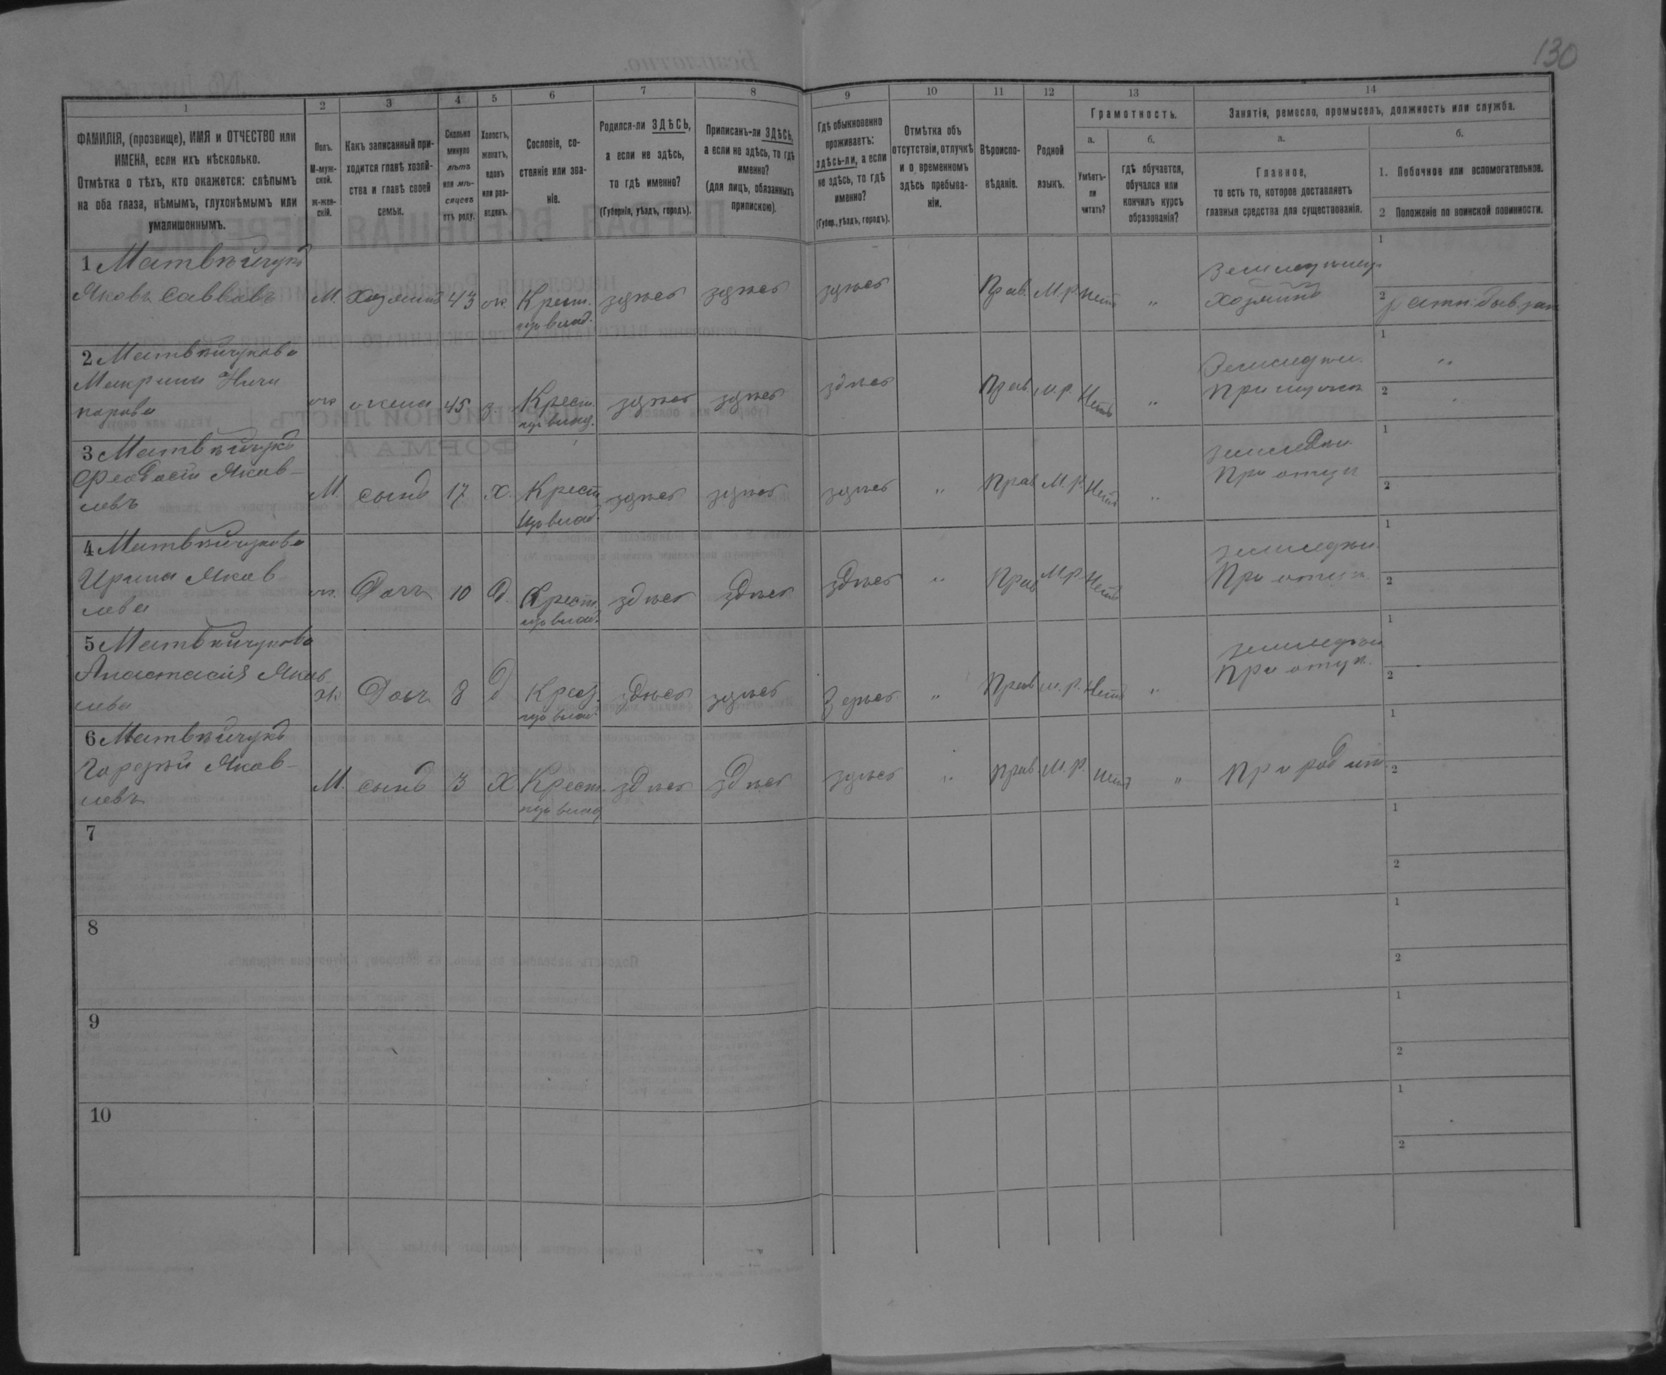 130
1 2 3 4 5 6 7 8 9 10 11 12 13 14
ФАМИЛІЯ, (прозвище), ИМЯ и ОТЧЕСТВО или
ИМЕНА, если ихъ нѣсколько.
Отмѣтка о тѣхъ, кто окажется: слѣпымъ
на оба глаза, нѣмымъ, глухонѣмымъ или
умалишоннымъ.
Полъ.
М-муж-
ской.
ж-жен-
скій.
Какъ записанный при-
ходится главѣ хозяй-
ства и главѣ своей
семьи.
Сколько
минуло
лѣтъ
или мѣ-
сяцевъ
отъ роду.
Холостъ,
женатъ,
вдовъ
или раз-
веденъ.
Сословіе, со-
стояніе или зва-
ніе.
Родился-ли ЗДѢСЬ,
а если не здѣсь,
то гдѣ именно?
(Губернія, уѣздъ, городъ).
Приписанъ-ли ЗДѢСЬ,
а если не здѣсь, то гдѣ
именно?
(для лицъ, обязанныхъ
припискою).
Гдѣ обыкновенно
проживаетъ:
здѣсь-ли, а если
не здѣсь, то гдѣ
именно?
(Губер., уѣздъ, городъ).
Отмѣтка объ
отсутствіи, отлучкѣ
и о временномъ
здѣсь пребыва-
ніи.
Вѣроиспо-
вѣданіе.
Родной
языкъ.
Грамотность.
а.
Умѣетъ-
ли
читать?
б.
гдѣ обучается,
обучался или
кончилъ курсъ
образованія?
Занятія, ремесло, промыселъ, должность или служба.
а.
Главное,
то есть то, которое доставляетъ
главныя средства для существованія.
б.
1. Побочное или вспомогательное.
2 Положеніе по воинской повинности.
1 Матвѣйчукъ
Яковъ Саввовъ М. Хозяинъ 43 ж Крест. здѣсь здѣсь здѣсь Прав. М.р. Нѣтъ „ Хозяинъ
из влад.
1
2
2 Матвѣйчукова
Макрина Ники
парова ж жена 45 з Крест. здѣсь здѣсь здѣсь Прав. м.р. Нѣтъ „
из влад.
1 „
2 „
3 Матвѣйчукъ
Феодосій Яков-
левъ М. сынъ 17 Х. Крест здѣсь здѣсь здѣсь „ Прав М.р. Нѣтъ „ При отцѣ
из влад.
1
2
4 Матвѣйчукова
Ирина Яков
лева ж. Дочь 10 Д Крест здѣсь здѣсь здѣсь „ Прав М.р. Нѣтъ При отцѣ
из влад.
1
2
5 Матвѣйчукова
Анастасія Яков
лева ж. Дочь 8 д Крест. здѣсь здѣсь здѣсь „ Прав м.р. Нѣтъ „ При отцѣ
из влад.
1
2
6 Матвѣйчукъ
Гордѣй Яков-
левъ М. сынъ 3 Х Крест здѣсь здѣсь здѣсь „ Прав м.р. Нѣтъ „ При родит.
из влад
1
2
7
1
2
8
1
2
9
1
2
10
1
2